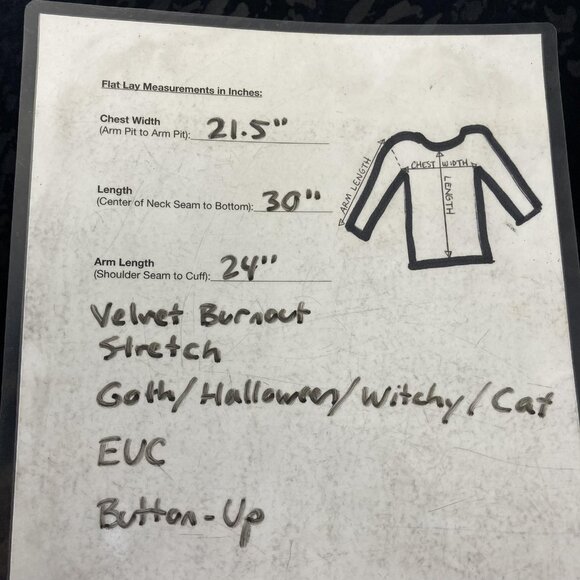 Flat Lay Measurements in Inches:
Chest Width
(Arm Pit to Arm Pit): 21.5"
Length
(Center of Neck Seam to Bottom): 30"
Arm Length
(Shoulder Seam to Cuff): 24"
ARM LENGTH
CHEST WIDTH
LENGTH
Velvet Burnout
Stretch
Goth/Halloween/Witchy/Cat
EUC
Button-Up